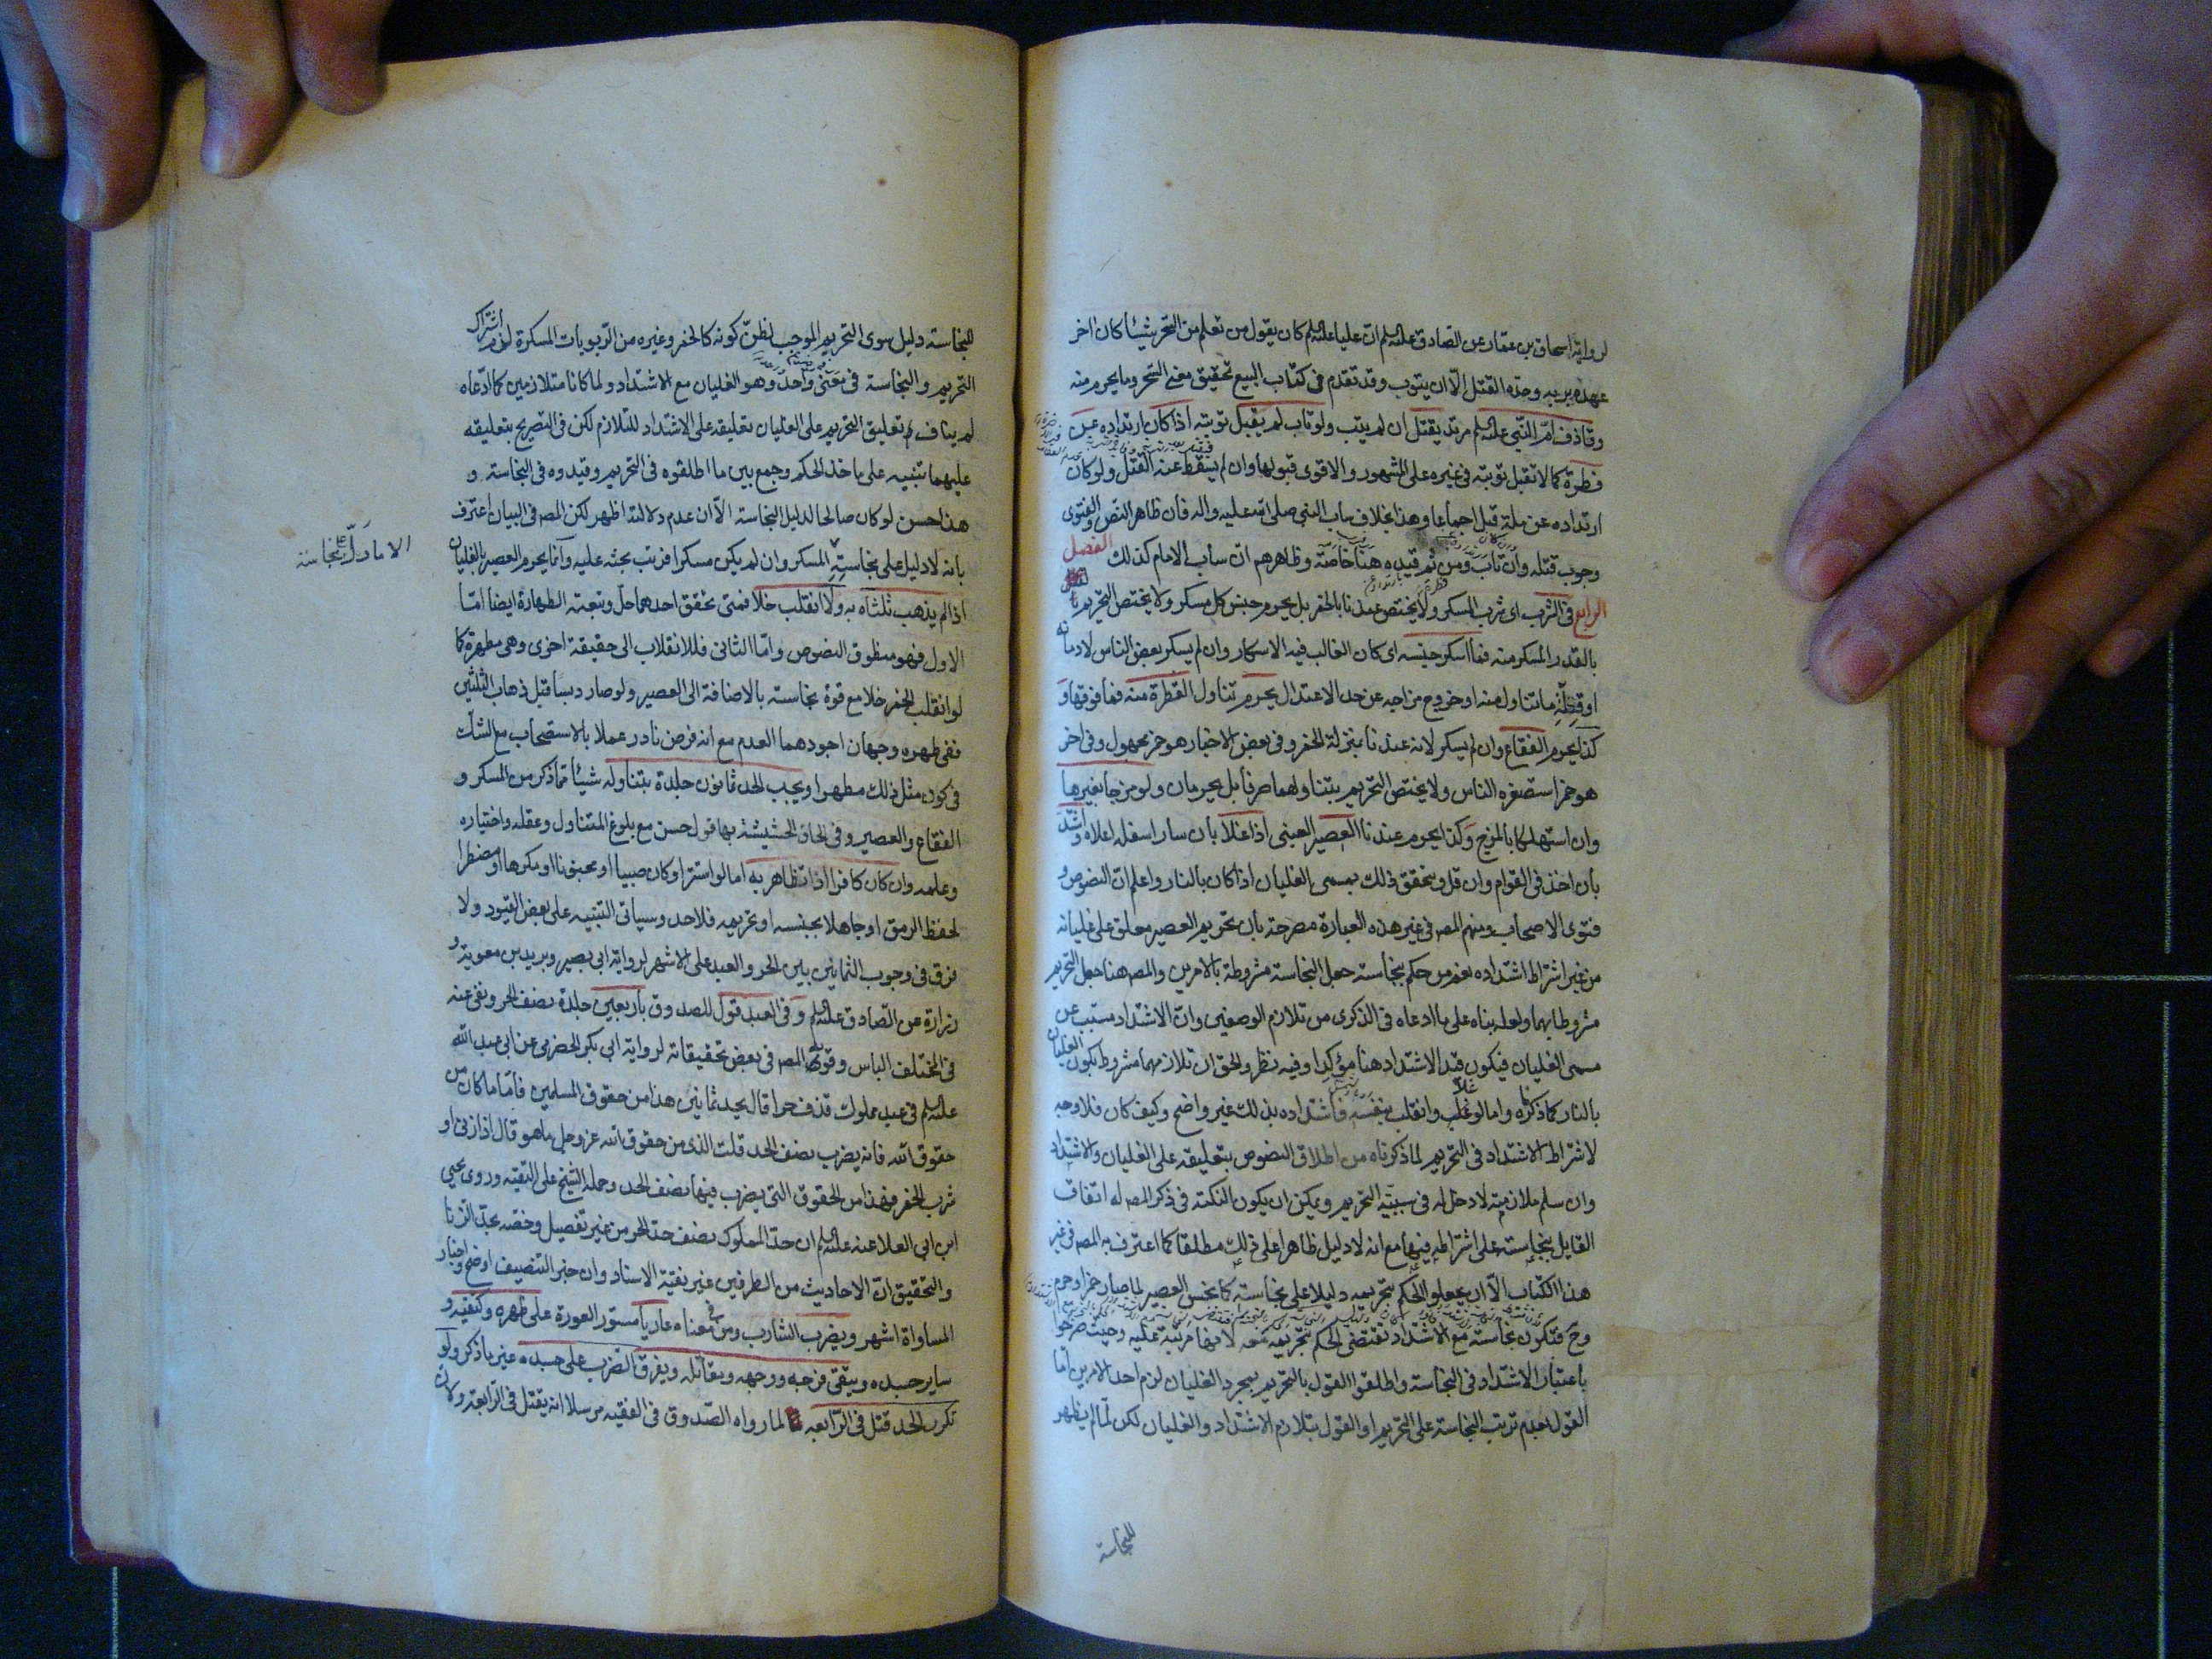 لرواية اسحاق بن عمار عن الصادق عليه السلم ان عليا عليه السلم كان يقول من تعلم من السحر شيئا كان اخر
عهده بربه وحده القتل الا ان يتوب وقد تقدم في كتاب البيع تحقيق معنى السحر وما يحرم منه
وقاذف ام النبي عليه السلم مرتد يقتل ان لم يتب ولو تاب لم يقبل توبته اذا كان ارتداده عن
فطرة كما لا تقبل توبته في غيره على المشهور والاقوى قبولها وان لم يسقط عنه القتل ولو كان
ارتداده عن ملة قبل اجماعا وهذا بخلاف ساب النبي صلى الله عليه واله فان ظاهر النص والفتوى
وجوب قتله وان تاب ومن ثم قيده هنا خاصة وظاهرهم ان ساب الامام كذلك الفصل
الرابع في الشرب اى شرب المسكر ولا يختص عندنا بالخمر بل يحرم جنس كل مسكر ولا يختص التحريم
بالقدر المسكر منه فما اسكر جنسه اى كان الغالب فيه الاسكار وان لم يسكر بعض الناس لادمانه
او قلة ما تناول منه او خروج مزاجه عن حد الاعتدال يحرم تناول القطرة منه فما فوقها و
كذا يحرم الفقاع وان لم يسكر لانه عندنا بمنزلة الخمر وفي بعض الاخبار هو خمر مجهول وفي اخر
هو خمر استصغره الناس ولا يختص التحريم بتناولهما صرفا بل يحرمان ولو مزجا بغيرها
وان استهلكا بالمزج وكذا يحرم عندنا العصير العنبى اذا غلا بان صار اسفله اعلاه واشتد
بان اخذ في القوام وان قل ويتحقق ذلك بمسمى الغليان اذا كان بالنار واعلم ان النصوص و
فتوى الاصحاب ومنهم المص في غير هذه العبارة مصرحة بان تحريم العصير معلق على غليانه
من غير اشتراط اشتداده نعم من حكم بنجاسته جعل النجاسة مشروطة بالامرين والمص هنا جعل التحريم
مشروطا بهما ولعله بناه على ما ادعاه في الذكرى من تلازم الوصفين وان الاشتداد مسبب عن
مسمى الغليان فيكون قيد الاشتداد هنا مؤكدا وفيه نظر والحق ان تلازمهما مشروط بكون الغليان
بالنار كما ذكرناه واما لو غلا وانقلب بنفسه فاشتداده بذلك غير واضح وكيف كان فلا وجه
لاشتراط الاشتداد في التحريم لما ذكرناه من اطلاق النصوص بتعليقه على الغليان والاشتداد
وان سلم ملازمته لا دخل له في سببية التحريم ويمكن ان يكون النكتة في ذكر المص له اتفاق
القايل بنجاسته على اشتراطه فيها مع انه لا دليل ظاهرا على ذلك مطلقا كما اعترف به المص في غير
هذا الكتاب الا ان يجعلوا الحكم بتحريمه دليلا على نجاسته كما ينجس العصير لما صار خمرا وحرم
وح فتكون نجاسته مع الاشتداد تقتضى الحكم بتحريمه معه لانها مرتبة عليه وحيث صرحوا
باعتبار الاشتداد في النجاسة واطلقوا القول بالتحريم بمجرد الغليان لزم احد الامرين اما
القول بعدم ترتب النجاسة على التحريم او القول بتلازم الاشتداد والغليان لكن لما لم يظهر
للنجاسة
للنجاسة دليل سوى التحريم الموجب لظن كونه كالخمر وغيره من الربوبات المسكرة لزم اشتراك
التحريم والنجاسة في معنى واحد وهو الغليان مع الاشتداد ولما كانا متلازمين كما ادعاه
لم يناف تعليق التحريم على الغليان تعليقه على الاشتداد للتلازم لكن في التصريح بتعليقه
عليهما تنبيه على ماخذ الحكم وجمع بين ما اطلقوه في التحريم وقيدوه في النجاسة و
هذا حسن لو كان صالحا لدليل النجاسة الا ان عدم دلالته اظهر لكن المص في البيان اعترف
بانه لا دليل على نجاسة المسكر وان لم يكن مسكرا فرتب بحثه عليه وانما يحرم العصير بالغليان
الا ما دل على نجاسة
اذا لم يذهب ثلثاه به ولا انقلب خلا فمتى تحقق احدهما حل وتبعته الطهارة ايضا اما
الاول فهو منطوق النصوص واما الثانى فللانقلاب الى حقيقة اخرى وهى مطهرة كما
لو انقلب الخمر خلا مع قوة نجاسته بالاضافة الى العصير ولو صار دبسا قبل ذهاب الثلثين
ففى طهره وجهان اجودهما العدم مع انه فرض نادر عملا بالاستصحاب مع الشك
في كون مثل ذلك مطهرا ويجب الحد ثمانون جلدة بتناوله شيئا مما ذكر من المسكر و
الفقاع والعصير وفي الحاق الحشيشة بها قول حسن مع بلوغ المتناول وعقله واختياره
وعلمه وان كان كافرا اذا تظاهر به اما لو استتر او كان صبيا او مجنونا او مكرها او مضطرا
لحفظ الرمق او جاهلا بجنسه او تحريمه فلا حد وسياتى التنبيه على بعض القيود ولا
فرق في وجوب الثمانين بين الحر والعبد على الاشهر لرواية ابى بصير وبريد بن معوية و
زرارة عن الصادق عليه السلم وفي العبد قول للصدوق باربعين جلدة نصف الحر ونفى عنه
في المختلف الباس وقواه المص في بعض تحقيقاته لرواية ابى بكر الحضرمى عن ابى عبد الله
عليه السلم في عبد مملوك قذف حرا قال يحد ثمانين هذا من حقوق المسلمين فاما ما كان من
حقوق الله فانه يضرب نصف الحد قلت الذى من حقوق الله عز وجل ما هو قال اذا زنى او
شرب الخمر فهذا من الحقوق التى يضرب فيها نصف الحد وحمله الشيخ على التقية وروى يحيى
ابن ابى العلا عنه عليه السلم ان حد المملوك نصف حد الحر من غير تفصيل وخصه بحد الزنا
والتحقيق ان الاحاديث من الطرفين غير نقية الاسناد وان خبر التنصيف اوضح واخبار
المساواة اشهر ويضرب الشارب ومن في معناه عاريا مستور العورة على ظهره وكتفيه و
ساير جسده ويتقى فرجه ووجهه ومقاتله ويفرق الضرب على جسده غير ما ذكر ولو
تكرر الحد قتل في الرابعه لما رواه الصدوق في الفقيه مرسلا انه يقتل في الرابعة ولان